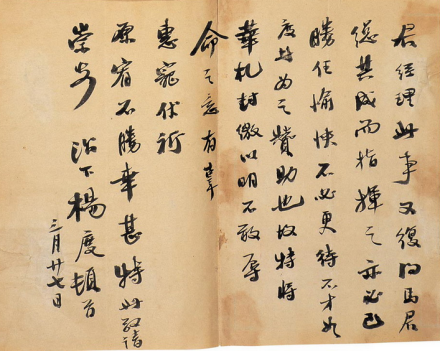 君經理此事又復得馬君
總其成而指揮之亦必已
勝任愉快不必更待不才如
度者為之贊助也故特將
華札封繳以明不敢辱
命之意有辜
惠寵伏祈
原宥不勝幸甚特此敬請
崇安
楊度頓首
三月廿七日